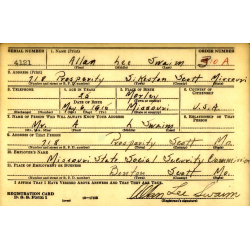 SERIAL NUMBER 1. NAME (Print) ORDER NUMBER
4121 Allan Lee Swaim 310A
2. ADDRESS (Print)
318 Prosperity Sikeston Scott Missouri
3. TELEPHONE 4. AGE IN YEARS 5. PLACE OF BIRTH 6. COUNTRY OF CITIZENSHIP
25 Morley
DATE OF BIRTH
1915 Missouri U.S.A.
7. NAME OF PERSON WHO WILL ALWAYS KNOW YOUR ADDRESS 8. RELATIONSHIP OF THAT PERSON
Mr. A L Swaim
9. ADDRESS OF THAT PERSON
318 Prosperity Scott Mo.
10. EMPLOYER'S NAME
Missouri State Social Security Commission
11. PLACE OF EMPLOYMENT OR BUSINESS
Benton Scott Mo.
I AFFIRM THAT I HAVE VERIFIED ABOVE ANSWERS AND THAT THEY ARE TRUE.
REGISTRATION CARD
D. S. S. Form 1
Allan Lee Swaim
(Registrant's signature)